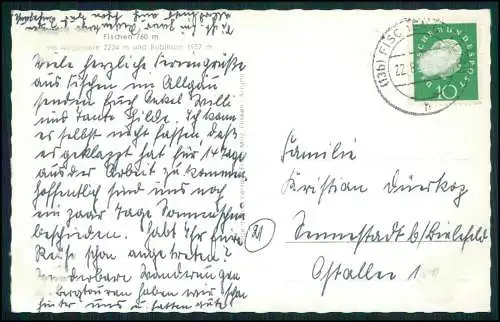 Fischen 760 m
2234 m und Rubihorn 1957 m
Viele herzliche Feriengrüße
aus Fischen im Allgäu
senden Euch Onkel Willi
und Tante Hilde. Ich kann
es selbst nicht fassen daß
es geklappt hat für 14 Tage
aus der Arbeit zu kommen
hoffentlich sind uns noch
ein paar Tage Sonnenschein
beschieden. Habt Ihr Eure
Reise schon angetreten?
Wunderbare Wanderungen
Bergtouren haben wir schon
hinter uns u. hatten gute
(13b) FISC
22.
h
DEUTSCHE BUNDESPOST
10
Familie
Kristian Dürkop
Sennestadt b/Bielefeld
Ostallee 1